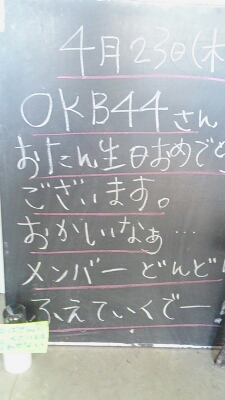 4月23日(木
OKB44さん
おたん生日おめでと
ございます。
おかしいなぁ…
メンバーどんど
ふえていくでー